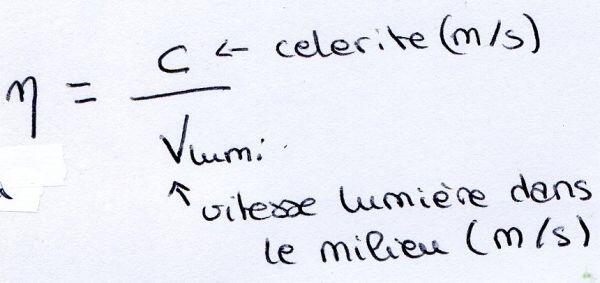 η = c / Vlumi ← celerite (m/s)
↑ vitesse lumière dans
le milieu (m/s)